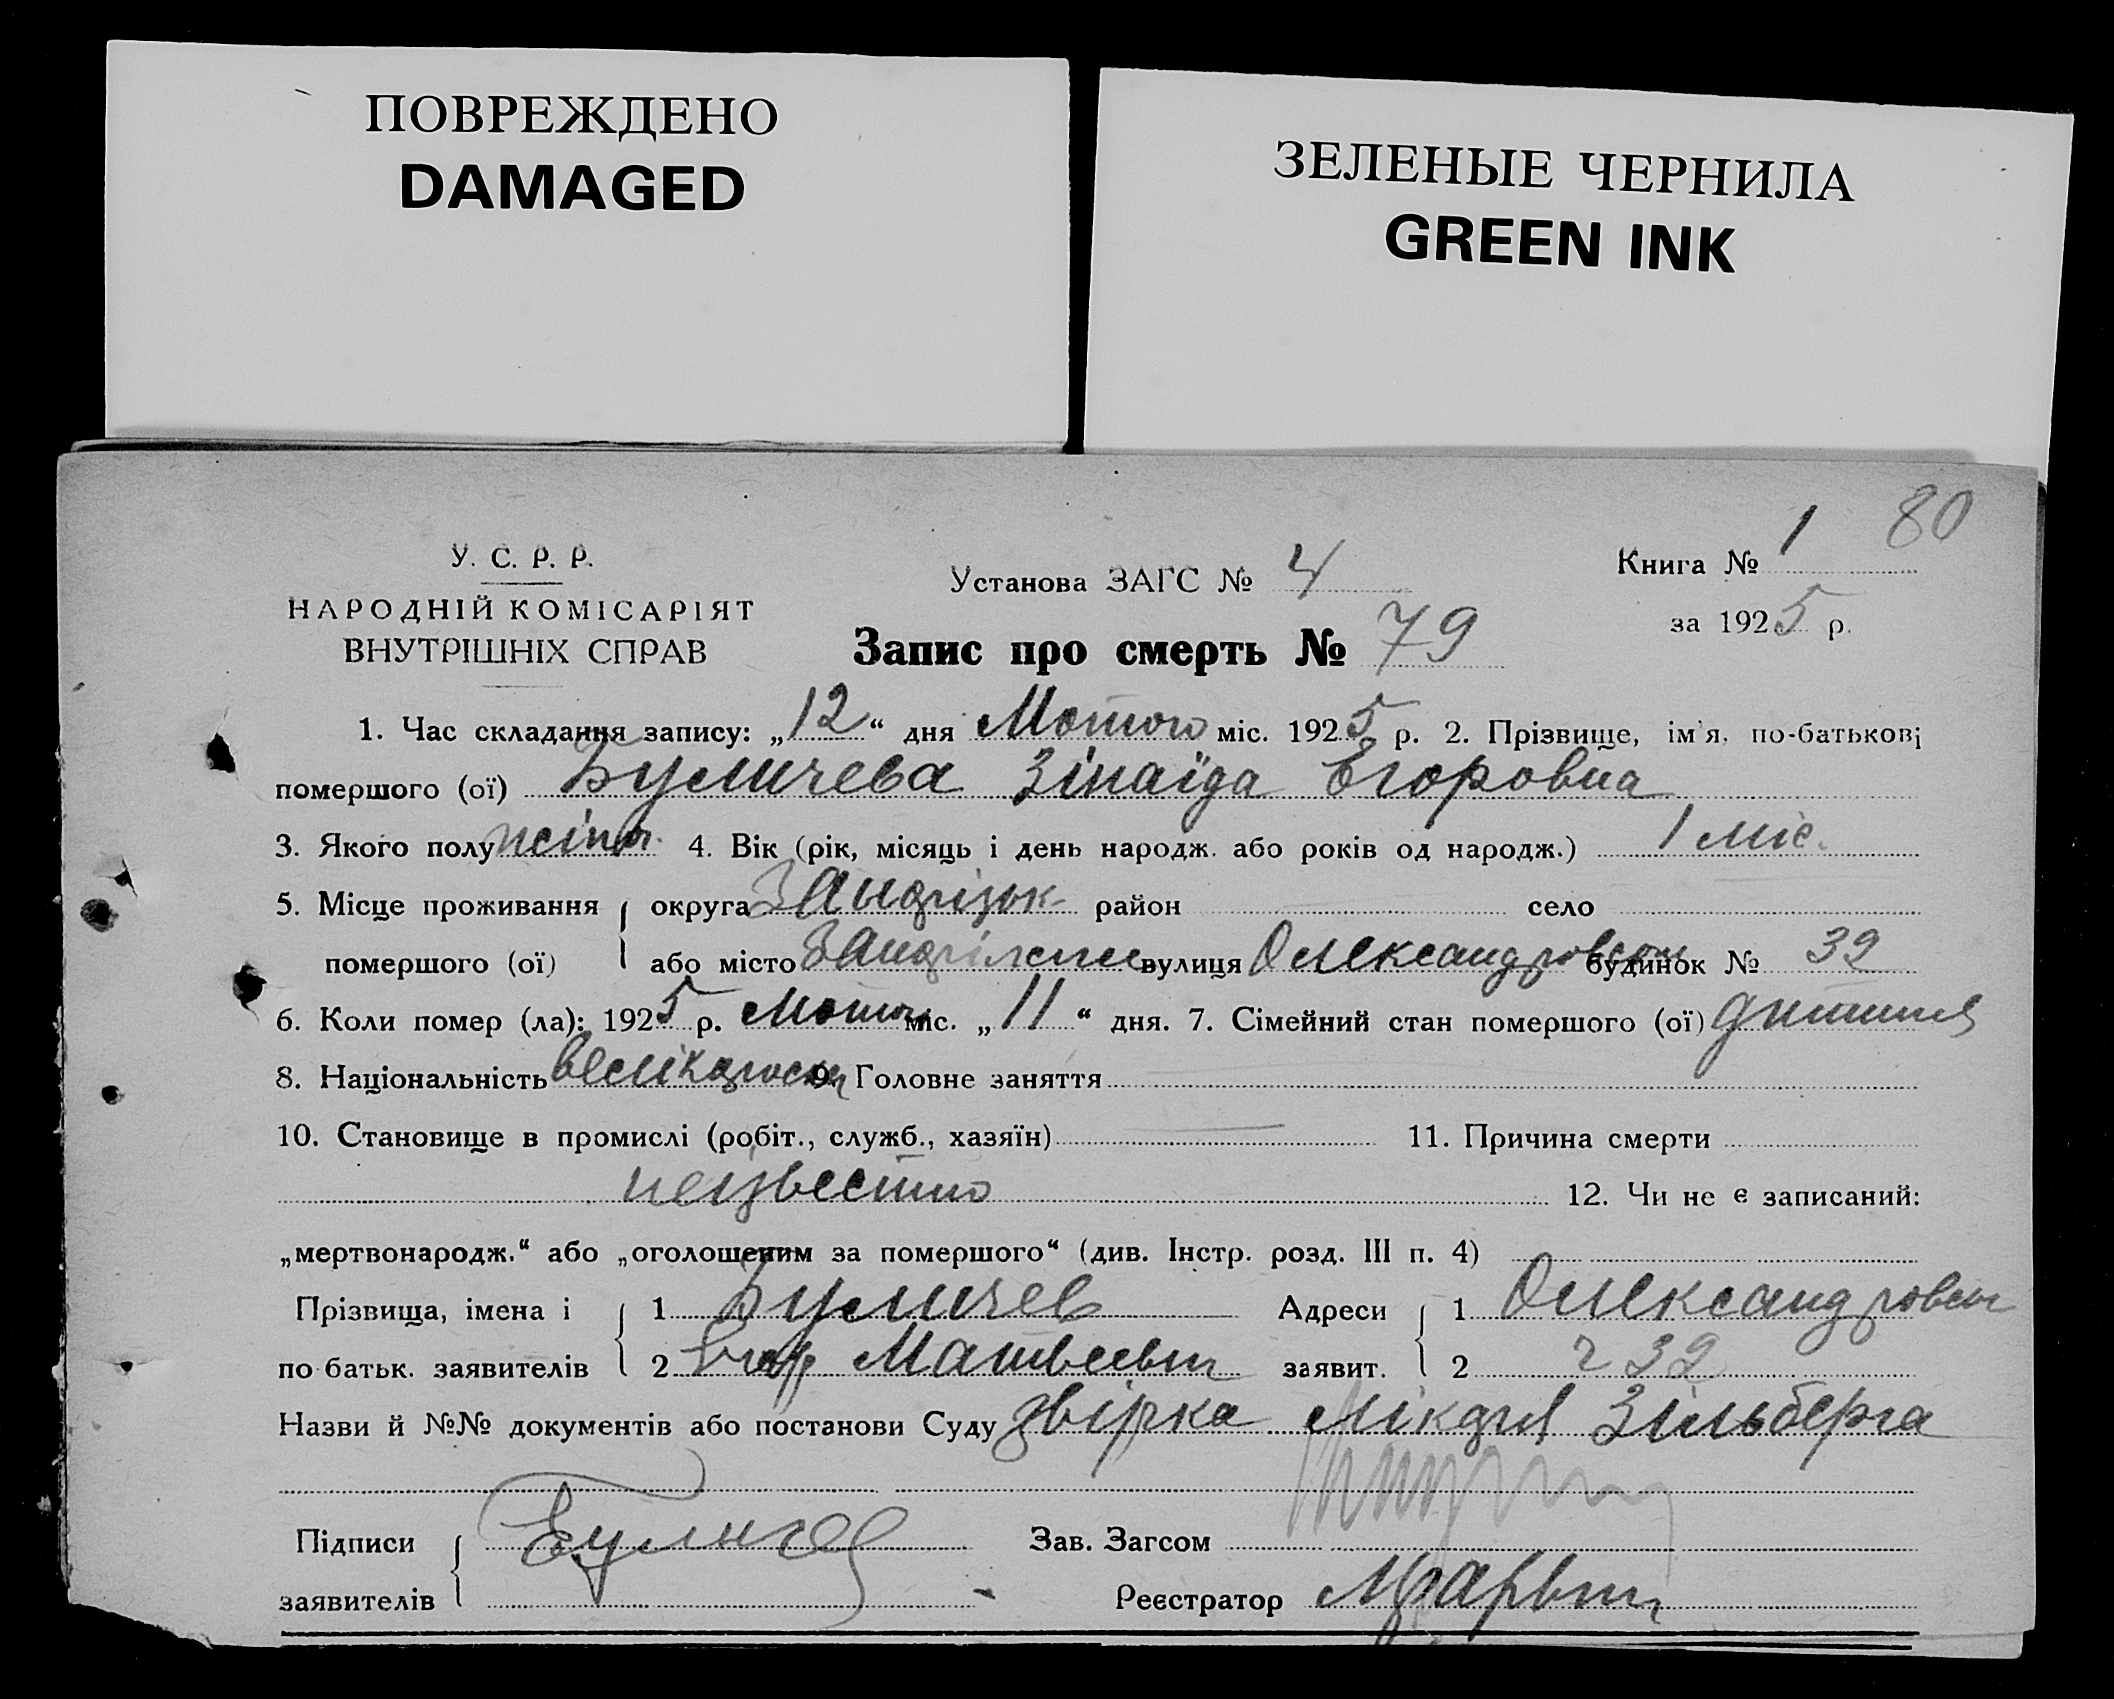 ПОВРЕЖДЕНО
DAMAGED
ЗЕЛЕНЫЕ ЧЕРНИЛА
GREEN INK
80
У. С. Р. Р.
НАРОДНІЙ КОМІСАРІЯТ
ВНУТРІШНІХ СПРАВ
Установа ЗАГС № 4
Книга № 1
за 1925 р.
Запис про смерть № 79
1. Час складання запису: „12“ дня Лютого міс. 1925 р. 2. Прізвище, ім'я, по-батькові
помершого (ої) Буличева Зінаїда Егоровна
3. Якого полу жіноч. 4. Вік (рік, місяць і день народж. або років од народж.) 1 міс.
5. Місце проживання округа район село
помершого (ої) або місто вулиця Олександровськ будинок № 39
6. Коли помер (ла): 1925 р. Лютого міс. „11“ дня. 7. Сімейний стан помершого (ої) дитина
8. Національність 9. Головне заняття
10. Становище в промислі (робіт., служб., хазяїн) 11. Причина смерти
неізвестно 12. Чи не є записаний:
„мертвонародж.“ або „оголошеним за помершого“ (див. Інстр. розд. III п. 4)
Прізвища, імена і 1 Буличев Адреси 1 Олександровськ
по батьк. заявителів 2 Егор Матвеевич заявит. 2 39
Назви й №№ документів або постанови Суду Звірка лікаря Зільберга
Підписи Буличев Зав. Загсом
заявителів Реєстратор